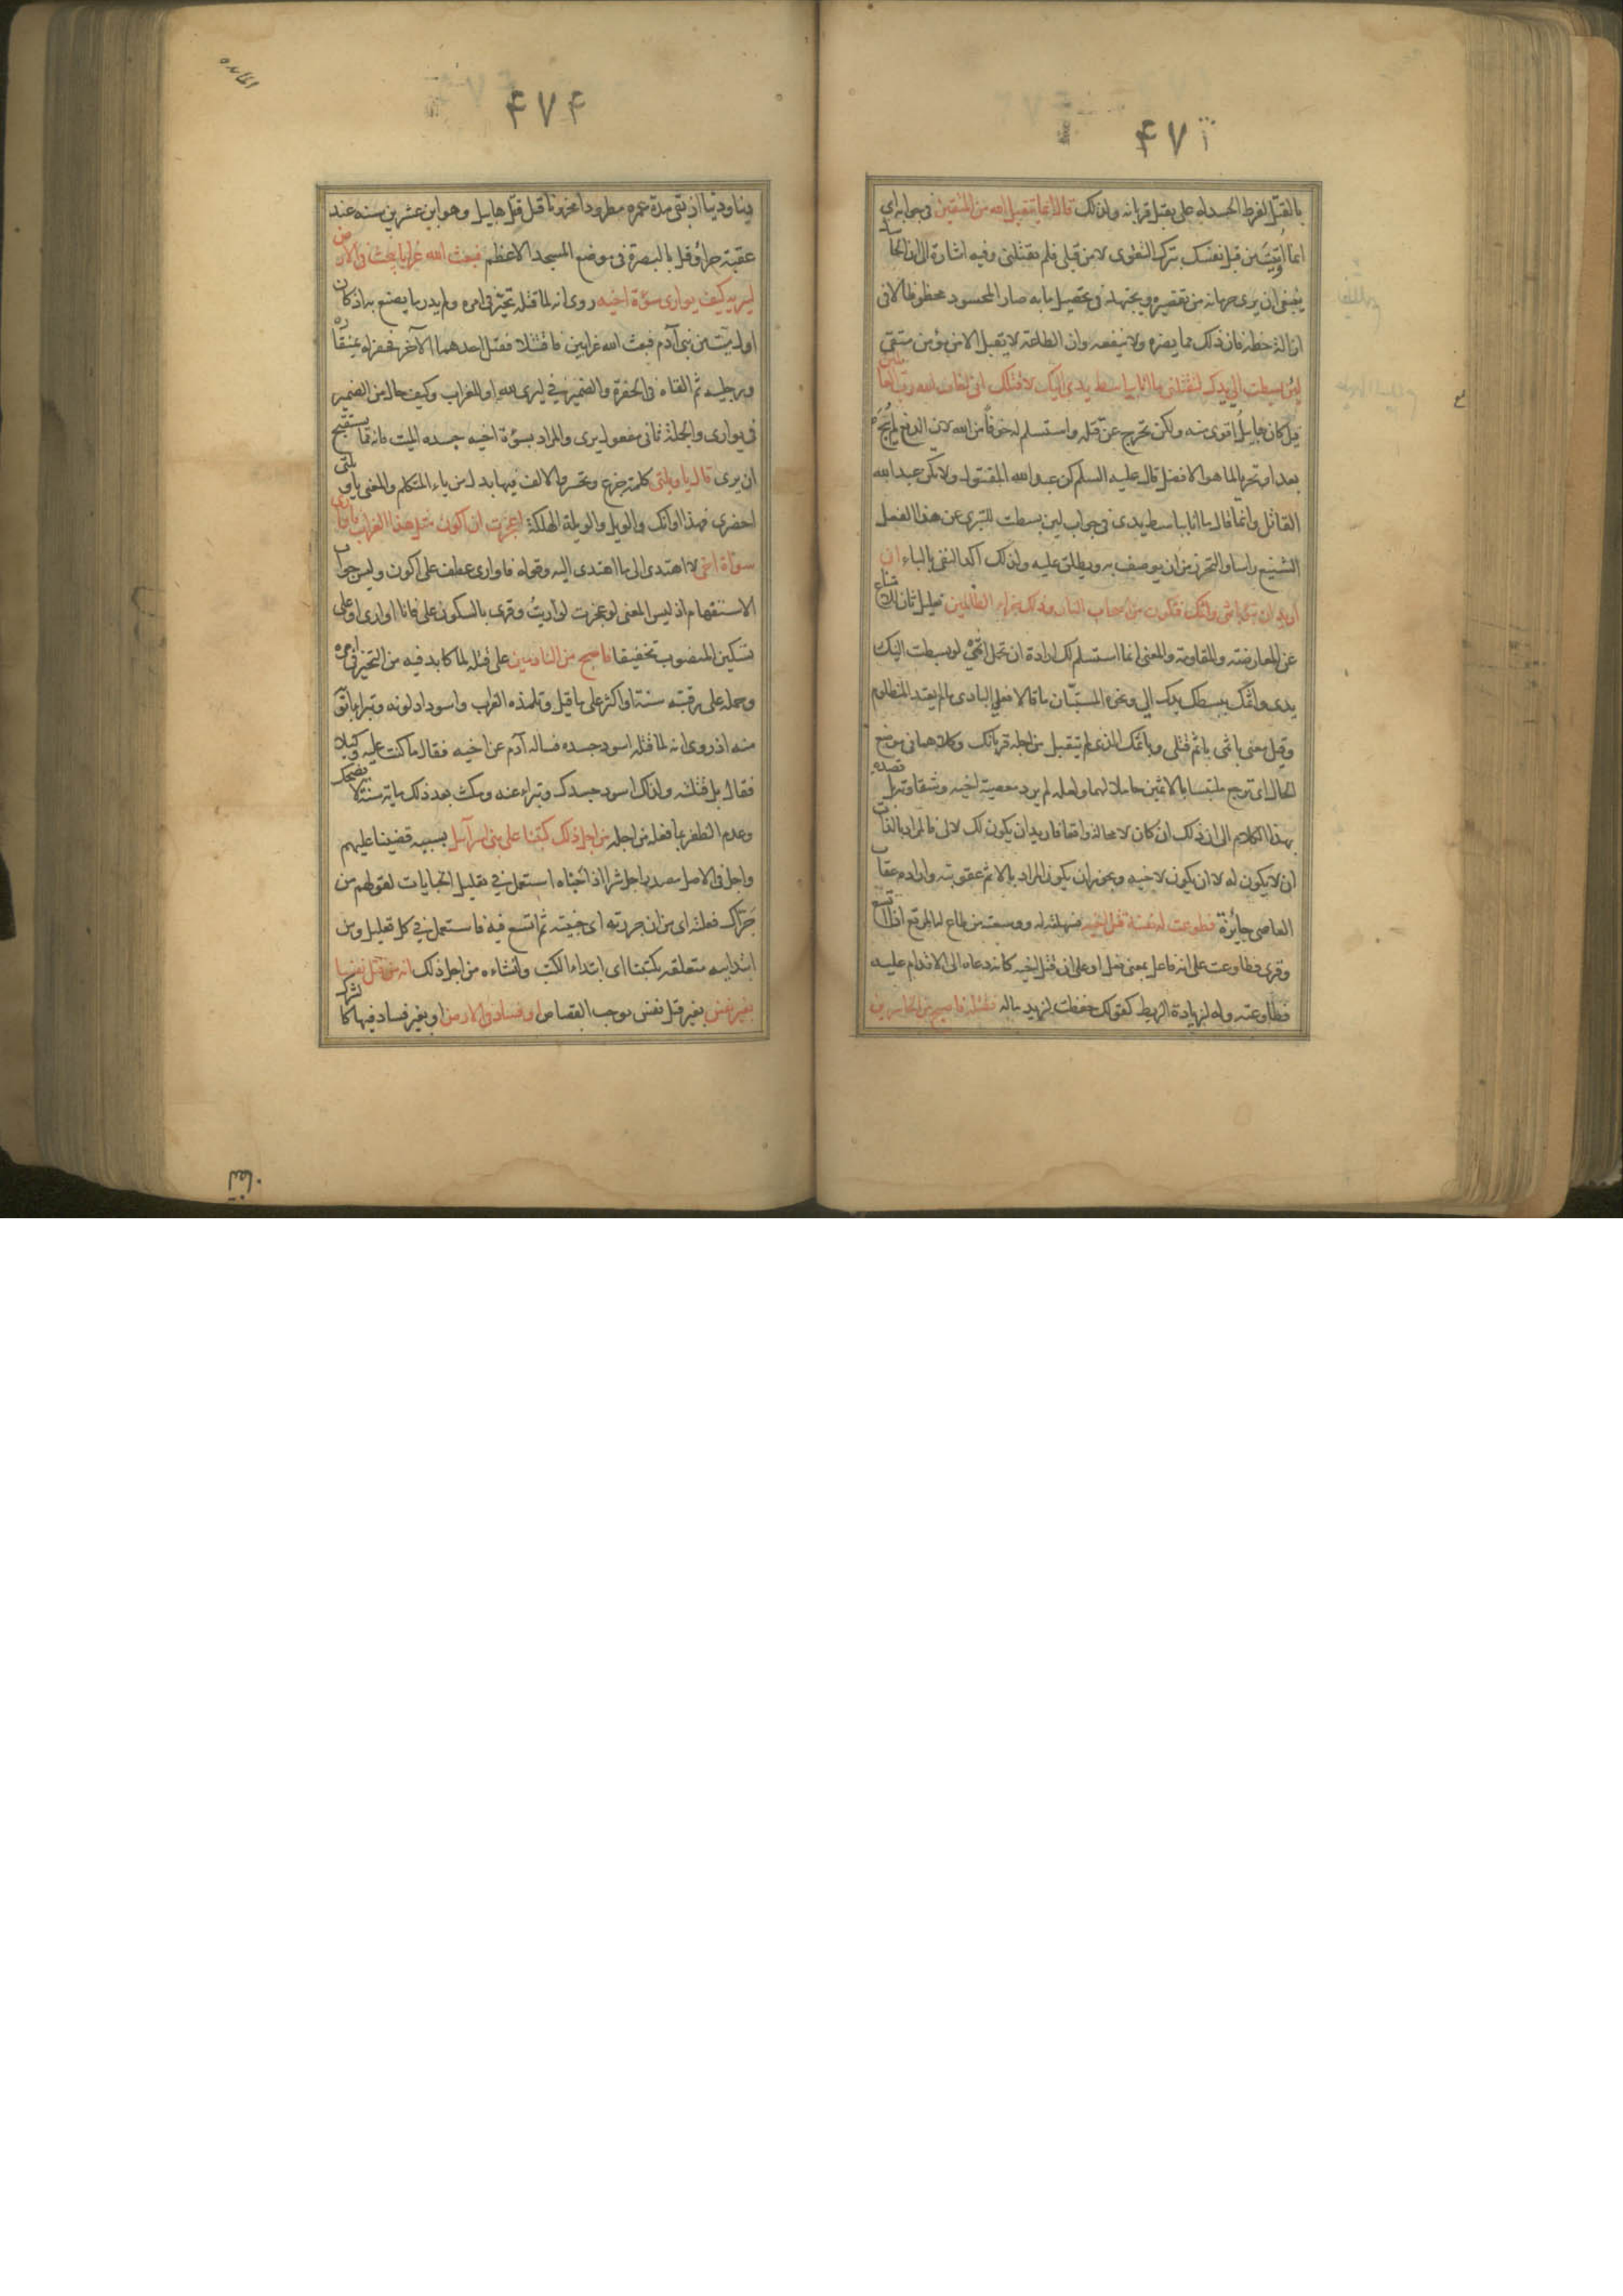 ۴۷۳
بالقتل لفرط الحسد له على تقبل قربانه ولذلك قال انما يتقبل الله من المتقين فى جوابه اى
انما اوتيت من قبل نفسك بترك التقوى لا من قبلى فلم تقتلنى وفيه اشارة الى ان الحاسد
ينبغى ان يرى حرمانه من تقصيره ويجتهد فى تحصيل ما به صار المحسود محظوظا لا فى
ازالة حظه فان ذلك مما يضره ولا ينفعه وان الطاعة لا تقبل الا من مؤمن متقى
لئن بسطت الى يدك لتقتلنى ما انا بباسط يدى اليك لاقتلك انى اخاف الله رب العالمين
قيل كان هابيل اقوى منه ولكن تحرج عن قتله واستسلم له خوفا من الله لان الدفع لم يبح
بعد او تحريا لما هو الافضل قال عليه السلم كن عبد الله المقتول ولا تكن عبد الله
القاتل وانما قال ما انا بباسط يدى فى جواب لئن بسطت للتبرى عن هذا الفعل
الشنيع راسا والتحرز من ان يوصف به ويطلق عليه ولذلك اكد النفى بالباء انى
اريد ان تبوء باثمى واثمك فتكون من اصحاب النار وذلك جزاء الظالمين تعليل ثان للامتناع
عن المعارضة والمقاومة والمعنى انما استسلم لك ارادة ان تحمل اثمى لو بسطت اليك
يدى واثمك ببسطك يدك الى ونحوه المستبان ما قالا فعلى البادى ما لم يعتد المظلوم
وقيل معنى باثمى باثم قتلى وباثمك الذى لم يتقبل من اجله قربانك وكلاهما فى موضع
الحال اى ترجع ملتبسا بالاثمين حاملا لهما ولعله لم يرد معصية اخيه وشقاوته بل قصده
بهذا الكلام الى ان ذلك ان كان لا محالة واقعا فاريد ان يكون لك لا لى فالمراد بالذات
ان لا يكون له لا ان يكون لاخيه ويجوز ان يكون المراد بالاثم عقوبته وارادة عقاب
العاصى جائزة فطوعت له نفسه قتل اخيه فسهلته له ووسعته من طاع له المرتع اذا اتسع
وقرى فطاوعت على انه فاعل بمعنى فعل او على ان قتل اخيه كانه دعاه الى الاقدام عليه
فطاوعته وله لزيادة الربط كقولك حفظت لزيد ماله فقتله فاصبح من الخاسرين
المائده
۴۷۴
دينا ودنيا اذ بقى مدة عمره مطرودا محزونا قيل قتل هابيل وهو ابن عشرين سنة عند
عقبة حراء وقيل بالبصرة فى موضع المسجد الاعظم فبعث الله غرابا يبحث فى الارض
ليريه كيف يوارى سوءة اخيه روى انه لما قتله تحير فى امره ولم يدر ما يصنع به اذ كان
اول ميت من بنى آدم فبعث الله غرابين فاقتتلا فقتل احدهما الآخر فحفر له بمنقاره
ورجليه ثم القاه فى الحفرة والضمير فى ليرى لله او للغراب وكيف حال من الضمير
فى يوارى والجملة ثانى مفعولى يرى والمراد بسوءة اخيه جسده الميت فانه مما يستقبح
ان يرى قال يا ويلتى كلمة جزع وتحسر والالف فيها بدل من ياء المتكلم والمعنى يا ويلتى
احضرى فهذا اوانك والويل والويلة الهلكة اعجزت ان اكون مثل هذا الغراب فاوارى
سوءة اخى لا اهتدى الى ما اهتدى اليه وقوله فاوارى عطف على اكون وليس جواب
الاستفهام اذ ليس المعنى لو عجزت لواريت وقرى بالسكون على فانا اوارى او على
تسكين المنصوب تخفيفا فاصبح من النادمين على قتله لما كابد فيه من التحير فى امره
وحمله على رقبته سنة او اكثر على ما قيل وتلمذه الغراب واسوداد لونه وتبرا ابواه
منه اذ روى انه لما قتله اسود جسده فساله آدم عن اخيه فقال ما كنت عليه وكيلا
فقال بل قتلته ولذلك اسود جسدك وتبراء عنه ومكث بعد ذلك ماية سنة لا يضحك
وعدم الظفر بما فعله من اجله من اجل ذلك كتبنا على بنى اسرآئيل بسببه قضينا عليهم
واجل فى الاصل مصدر اجل شرا اذا جناه استعمل فى تعليل الجنايات كقولهم من
جراك فعلته اى من ان جررته اى جنيته ثم اتسع فيه فاستعمل فى كل تعليل ومن
ابتدائيه متعلقه بكتبنا اى ابتداء الكتب وانشاءه من اجل ذلك انه من قتل نفسا
بغير نفس بغير قتل نفس يوجب القصاص او فساد فى الارض او بغير فساد فيها كالشرك